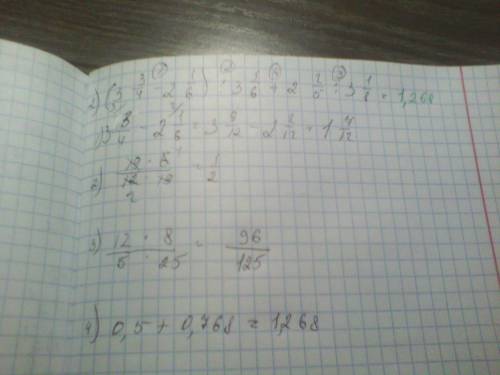 2) (3 3/4 - 2 1/6) : 3 1/6 + 2 2/5 : 3 1/8 = 1,268
1) 3 3/4 - 2 1/6 = 3 9/12 - 2 2/12 = 1 7/12
2) = 1/2
3) 12 · 8 / 5 · 25 = 96/125
4) 0,5 + 0,768 = 1,268